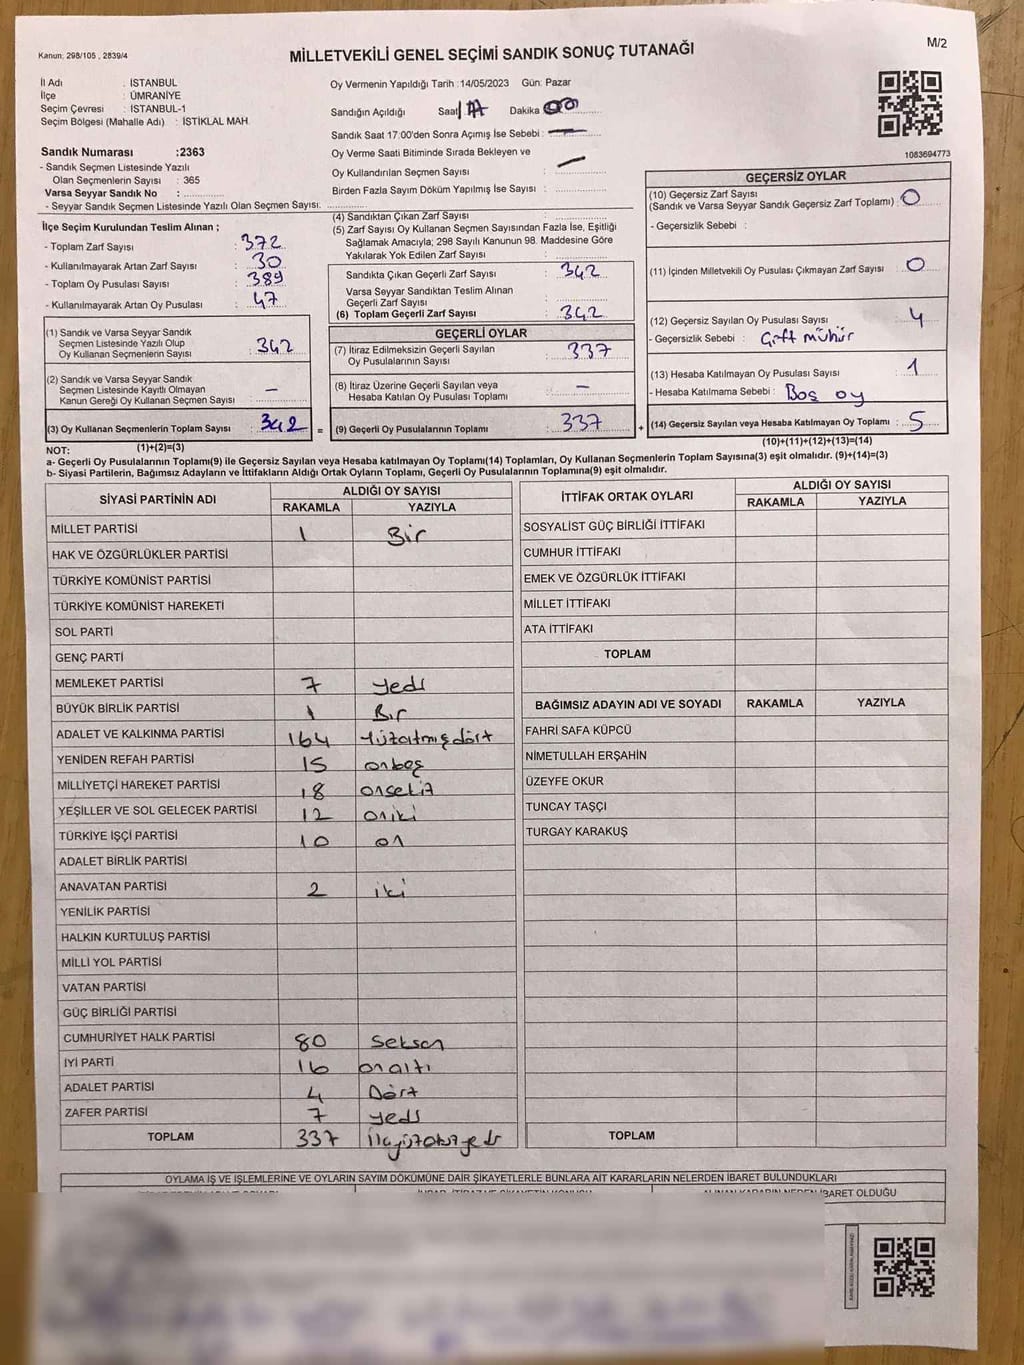 Kanun: 298/105 , 2839/4
MİLLETVEKİLİ GENEL SEÇİMİ SANDIK SONUÇ TUTANAĞI
M/2
İl Adı : İSTANBUL
İlçe : ÜMRANİYE
Seçim Çevresi : İSTANBUL-1
Seçim Bölgesi (Mahalle Adı) : İSTİKLAL MAH.
Sandık Numarası :2363
- Sandık Seçmen Listesinde Yazılı
Olan Seçmenlerin Sayısı : 365
Varsa Seyyar Sandık No :
- Seyyar Sandık Seçmen Listesinde Yazılı Olan Seçmen Sayısı:
Oy Vermenin Yapıldığı Tarih :14/05/2023 Gün: Pazar
Sandığın Açıldığı Saat 17 Dakika 00
Sandık Saat 17:00'den Sonra Açımış İse Sebebi : —
Oy Verme Saati Bitiminde Sırada Bekleyen ve
Oy Kullandırılan Seçmen Sayısı : —
Birden Fazla Sayım Döküm Yapılmış İse Sayısı :
1083694773
İlçe Seçim Kurulundan Teslim Alınan ;
- Toplam Zarf Sayısı : 372
- Kullanılmayarak Artan Zarf Sayısı : 30
- Toplam Oy Pusulası Sayısı : 389
- Kullanılmayarak Artan Oy Pusulası : 47
(1) Sandık ve Varsa Seyyar Sandık
Seçmen Listesinde Yazılı Olup
Oy Kullanan Seçmenlerin Sayısı : 342
(2) Sandık ve Varsa Seyyar Sandık
Seçmen Listesinde Kayıtlı Olmayan
Kanun Gereği Oy Kullanan Seçmen Sayısı : —
(3) Oy Kullanan Seçmenlerin Toplam Sayısı : 342 =
(1)+(2)=(3)
(4) Sandıktan Çıkan Zarf Sayısı :
(5) Zarf Sayısı Oy Kullanan Seçmen Sayısından Fazla İse, Eşitliği
Sağlamak Amacıyla; 298 Sayılı Kanunun 98. Maddesine Göre
Yakılarak Yok Edilen Zarf Sayısı :
Sandıkta Çıkan Geçerli Zarf Sayısı : 342
Varsa Seyyar Sandıktan Teslim Alınan
Geçerli Zarf Sayısı :
(6) Toplam Geçerli Zarf Sayısı : 342
GEÇERLİ OYLAR
(7) İtiraz Edilmeksizin Geçerli Sayılan
Oy Pusulalarının Sayısı : 337
(8) İtiraz Üzerine Geçerli Sayılan veya
Hesaba Katılan Oy Pusulası Toplamı : —
(9) Geçerli Oy Pusulalarının Toplamı : 337 +
GEÇERSİZ OYLAR
(10) Geçersiz Zarf Sayısı
(Sandık ve Varsa Seyyar Sandık Geçersiz Zarf Toplamı) : 0
- Geçersizlik Sebebi :
(11) İçinden Milletvekili Oy Pusulası Çıkmayan Zarf Sayısı : 0
(12) Geçersiz Sayılan Oy Pusulası Sayısı : 4
- Geçersizlik Sebebi : Çift mühür
(13) Hesaba Katılmayan Oy Pusulası Sayısı : 1
- Hesaba Katılmama Sebebi : Boş oy
(14) Geçersiz Sayılan veya Hesaba Katılmayan Oy Toplamı : 5
(10)+(11)+(12)+(13)=(14)
NOT:
a- Geçerli Oy Pusulalarının Toplamı(9) ile Geçersiz Sayılan veya Hesaba katılmayan Oy Toplamı(14) Toplamları, Oy Kullanan Seçmenlerin Toplam Sayısına(3) eşit olmalıdır. (9)+(14)=(3)
b- Siyasi Partilerin, Bağımsız Adayların ve İttifakların Aldığı Ortak Oyların Toplamı, Geçerli Oy Pusulalarının Toplamına(9) eşit olmalıdır.
SİYASİ PARTİNİN ADI ALDIĞI OY SAYISI
RAKAMLA YAZIYLA
MİLLET PARTİSİ 1 Bir
HAK VE ÖZGÜRLÜKLER PARTİSİ
TÜRKİYE KOMÜNİST PARTİSİ
TÜRKİYE KOMÜNİST HAREKETİ
SOL PARTİ
GENÇ PARTİ
MEMLEKET PARTİSİ 7 yedi
BÜYÜK BİRLİK PARTİSİ 1 Bir
ADALET VE KALKINMA PARTİSİ 164 Yüzatmışdört
YENİDEN REFAH PARTİSİ 15 onbeş
MİLLİYETÇİ HAREKET PARTİSİ 18 onsekiz
YEŞİLLER VE SOL GELECEK PARTİSİ 12 oniki
TÜRKİYE İŞÇİ PARTİSİ 10 on
ADALET BİRLİK PARTİSİ
ANAVATAN PARTİSİ 2 iki
YENİLİK PARTİSİ
HALKIN KURTULUŞ PARTİSİ
MİLLİ YOL PARTİSİ
VATAN PARTİSİ
GÜÇ BİRLİĞİ PARTİSİ
CUMHURİYET HALK PARTİSİ 80 Seksen
İYİ PARTİ 16 onaltı
ADALET PARTİSİ 4 Dört
ZAFER PARTİSİ 7 yedi
TOPLAM 337 üçyüzotuzyedi
İTTİFAK ORTAK OYLARI ALDIĞI OY SAYISI
RAKAMLA YAZIYLA
SOSYALİST GÜÇ BİRLİĞİ İTTİFAKI
CUMHUR İTTİFAKI
EMEK VE ÖZGÜRLÜK İTTİFAKI
MİLLET İTTİFAKI
ATA İTTİFAKI
TOPLAM
BAĞIMSIZ ADAYIN ADI VE SOYADI RAKAMLA YAZIYLA
FAHRİ SAFA KÜPCÜ
NİMETULLAH ERŞAHİN
ÜZEYFE OKUR
TUNCAY TAŞÇI
TURGAY KARAKUŞ
TOPLAM
OYLAMA İŞ VE İŞLEMLERİNE VE OYLARIN SAYIM DÖKÜMÜNE DAİR ŞİKAYETLERLE BUNLARA AİT KARARLARIN NELERDEN İBARET BULUNDUKLARI
İBARET OLDUĞU